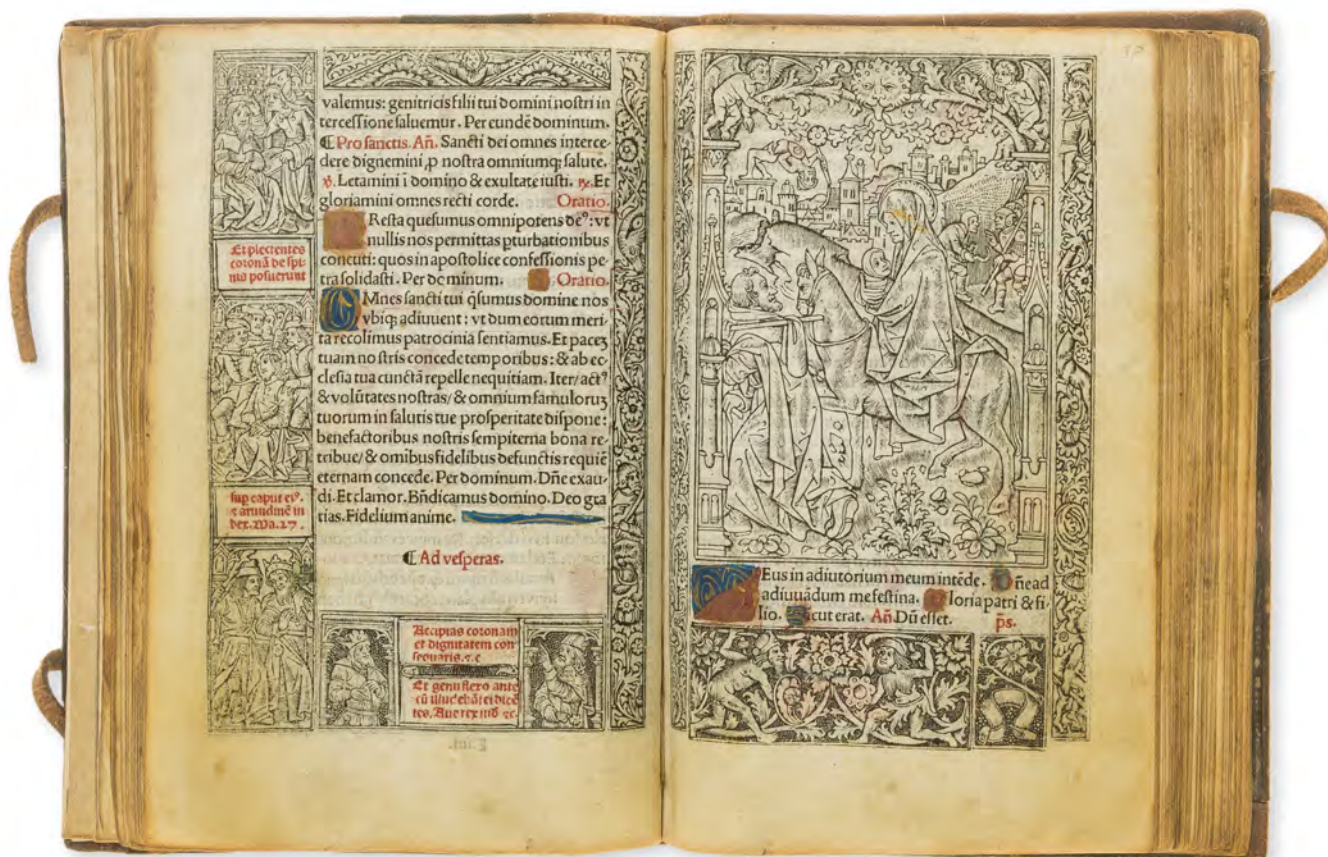 valemus: genitricis filii tui domini nostri in
tercessione saluemur. Per eundē dominum.
¶ Pro sanctis. Añ. Sancti dei omnes interce
dere dignemini ,p nostra omniumq; salute.
℣. Letamini ī domino & exultate iusti. ℟. Et
gloriamini omnes recti corde. Oratio.
Resta quesumus omnipotens deꝰ: vt
nullis nos permittas pturbationibus
concuti: quos in apostolice confessionis pe
tra solidasti. Per dominum. Oratio.
OMnes sancti tui q̄sumus domine nos
vbiq; adiuuent: vt dum eorum meri
ta recolimus patrocinia sentiamus. Et pacez
tuam nostris concede temporibus: & ab ec
clesia tua cunctā repelle nequitiam. Iter/ actꝰ
& volūtates nostras/ & omnium famuloruz
tuorum in salutis tue prosperitate dispone:
benefactoribus nostris sempiterna bona re-
tribue/ & omibus fidelibus defunctis requiē
eternam concede. Per dominum. Dñe exau-
di. Et clamor. Bñdicamus domino. Deo gra
tias. Fidelium anime.
¶ Ad vesperas.
Et plectentes
coronā de spi-
nis posuerunt
sup caput eiꝰ.
⁊ arundinē in
dex. Ma.27.
Accipias coronam
et dignitatem con
sequaris. ⁊.c
Et genu flexo ante
eū
tes. Aue rex
Eus in adiutorium meum intēde. Dñe ad
adiuuādum me festina. Gloria patri & fi-
lio. Sicut erat. Añ. Dū esset. p̄s.